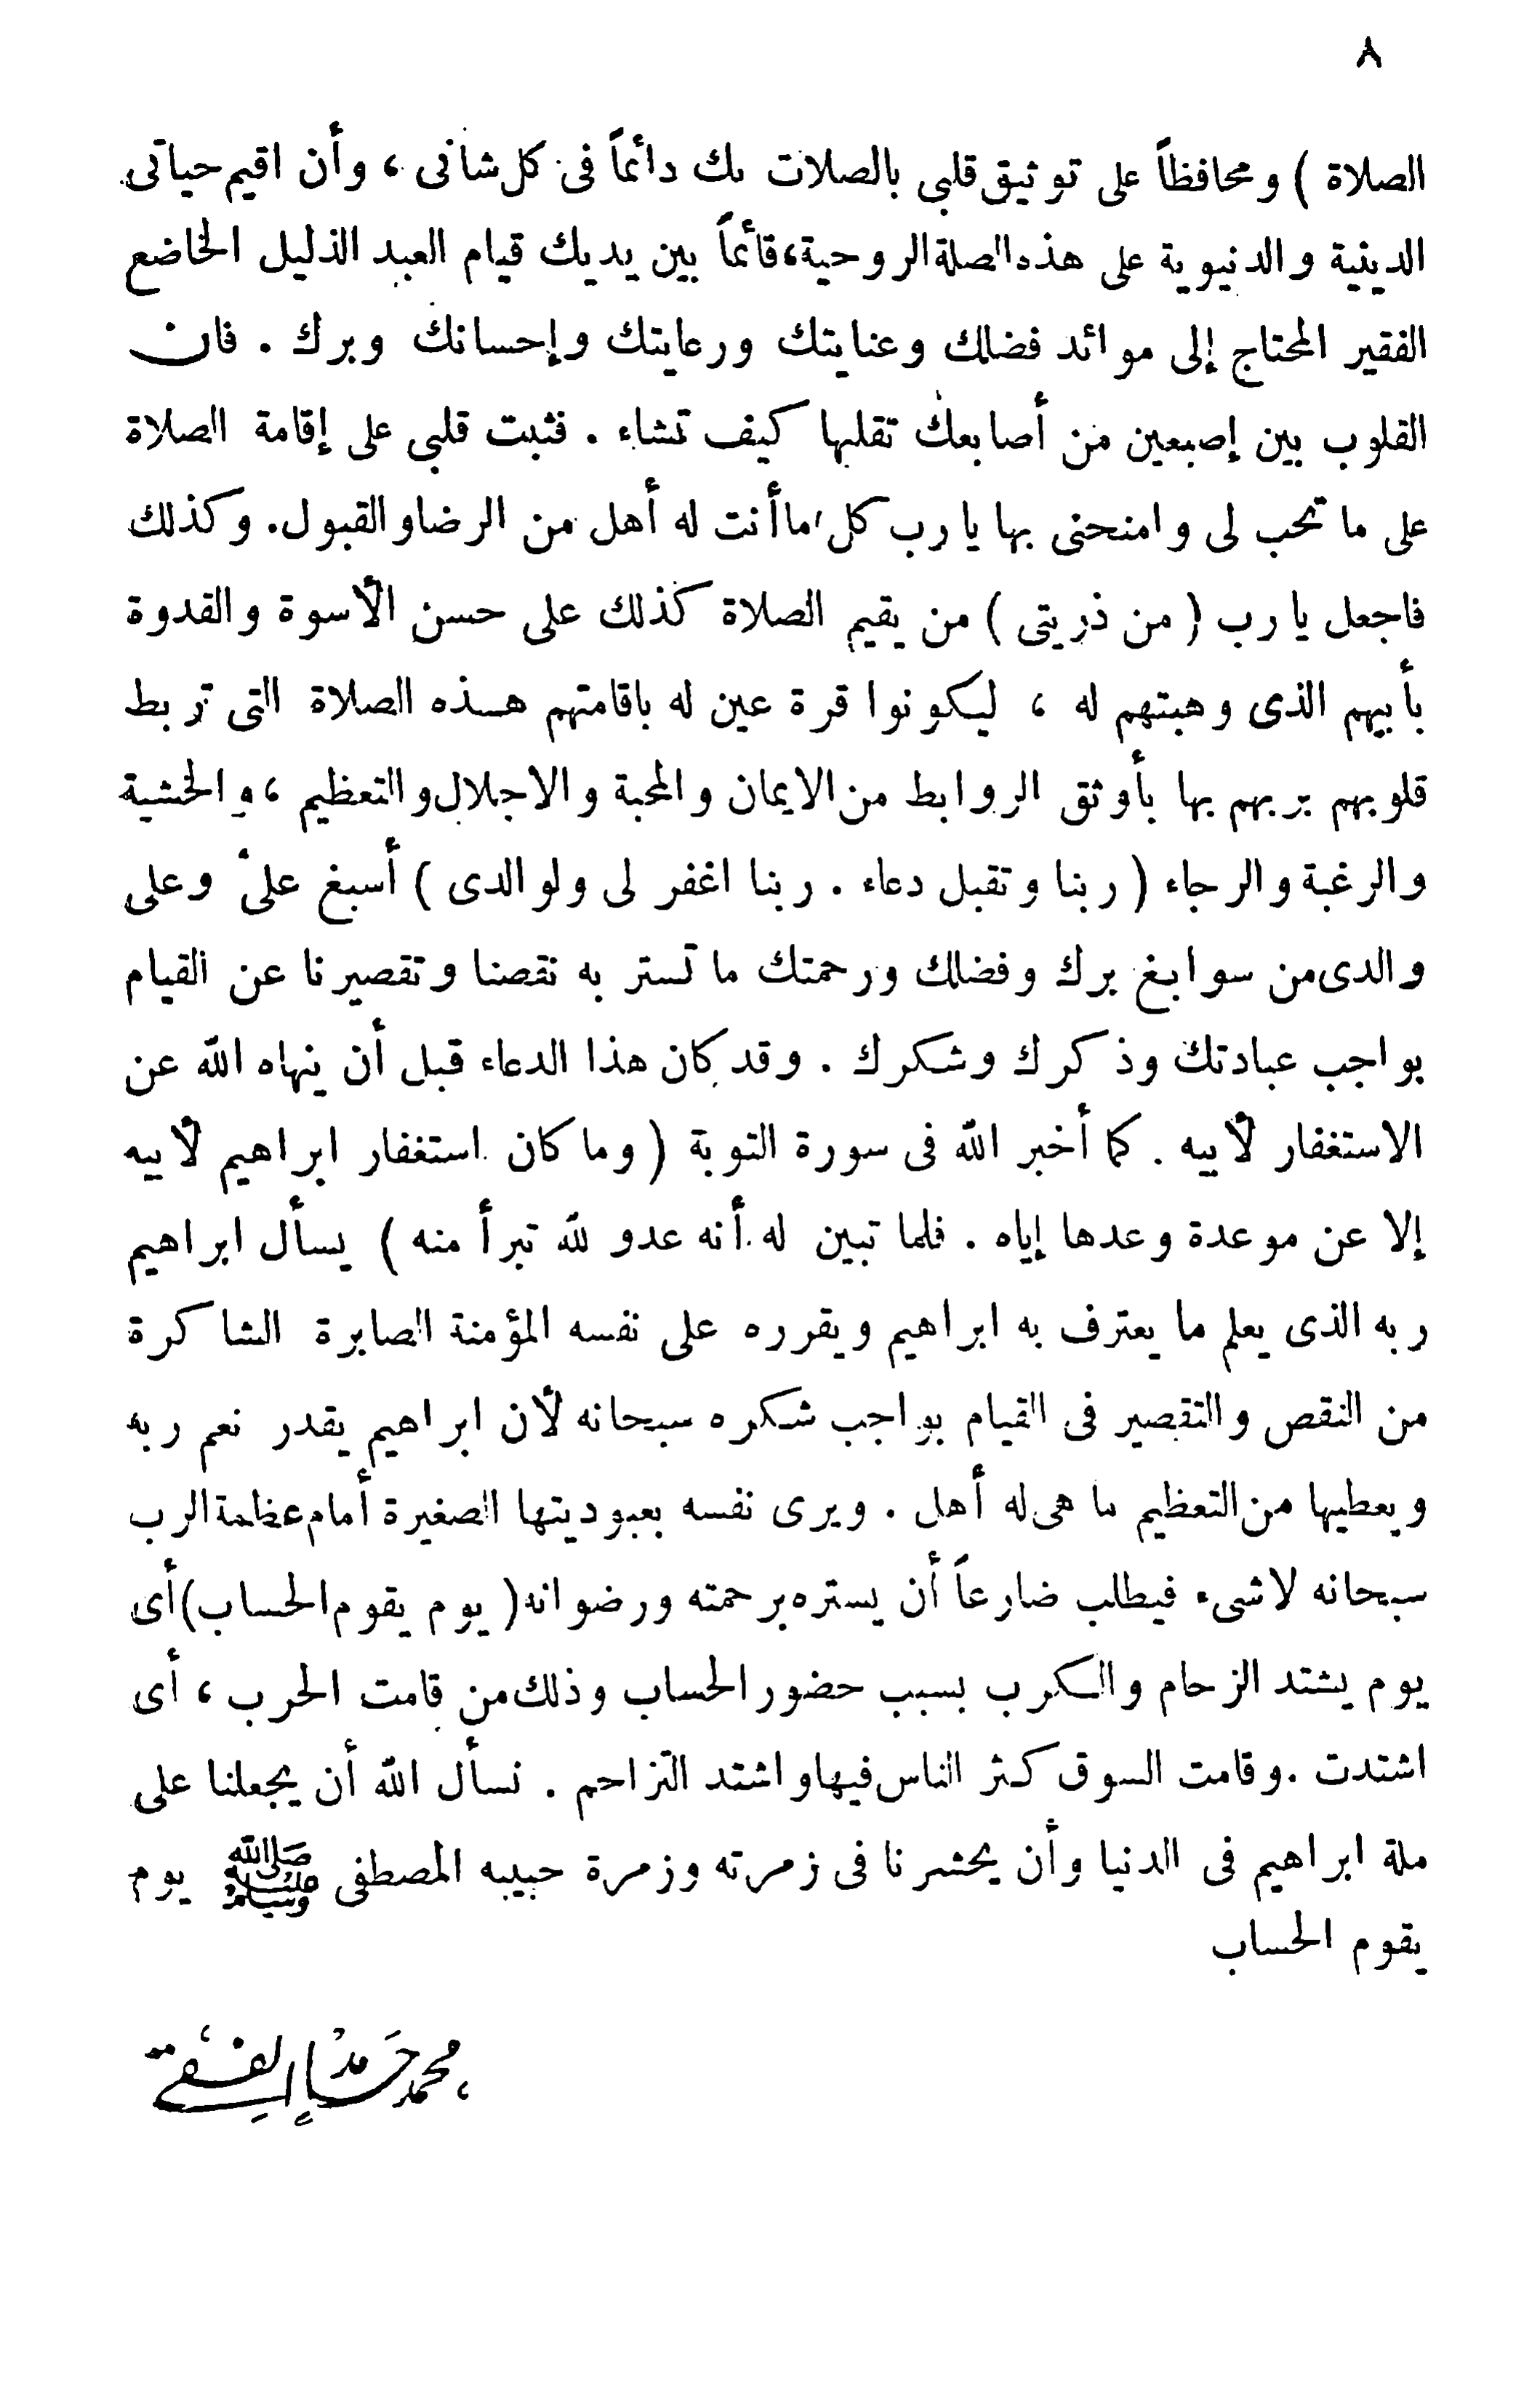 ٨
الصلاة ) ومحافظاً على توثيق قلبى بالصلات بك دائماً فى كل شانى ، وأن اقيم حياتى
الدينية والدنيوية على هذه الصلة الروحية، قائماً بين يديك قيام العبد الذليل الخاضع
الفقير المحتاج إلى موائد فضلك وعنايتك ورعايتك وإحسانك وبرك . فان
القلوب بين إصبعين من أصابعك تقلبها كيف تشاء . فثبت قلبى على إقامة الصلاة
على ما تحب لى وامنحنى بها يا رب كل ما أنت له أهل من الرضا والقبول. وكذلك
فاجعل يا رب ( من ذريتى ) من يقيم الصلاة كذلك على حسن الأسوة والقدوة
بأبيهم الذى وهبتهم له ، ليكونوا قرة عين له باقامتهم هذه الصلاة التى تربط
قلوبهم بربهم بها بأوثق الروابط من الايمان والمحبة والاجلال والتعظيم ، والخشية
والرغبة والرجاء ( ربنا وتقبل دعاء . ربنا اغفر لى ولوالدى ) أسبغ علىّ وعلى
والدى من سوابغ برك وفضلك ورحمتك ما تستر به نقصنا وتقصيرنا عن القيام
بواجب عبادتك وذكرك وشكرك . وقد كان هذا الدعاء قبل أن ينهاه الله عن
الاستغفار لأبيه . كما أخبر الله فى سورة التوبة ( وما كان استغفار ابراهيم لأبيه
إلا عن موعدة وعدها إياه . فلما تبين له أنه عدو لله تبرأ منه ) يسأل ابراهيم
ربه الذى يعلم ما يعترف به ابراهيم ويقرره على نفسه المؤمنة الصابرة الشاكرة
من النقص والتقصير فى القيام بواجب شكره سبحانه لأن ابراهيم يقدر نعم ربه
ويعطيها من التعظيم ما هى له أهل . ويرى نفسه بعبوديتها الصغيرة أمام عظمة الرب
سبحانه لاشىء فيطلب ضارعاً أن يستره برحمته ورضوانه ( يوم يقوم الحساب ) أى
يوم يشتد الزحام والكرب بسبب حضور الحساب وذلك من قامت الحرب ، أى
اشتدت . وقامت السوق كثر الناس فيها واشتد التزاحم . نسأل الله أن يجعلنا على
ملة ابراهيم فى الدنيا وأن يحشرنا فى زمرته وزمرة حبيبه المصطفى ﷺ يوم
يقوم الحساب
محمد حامد الفقى